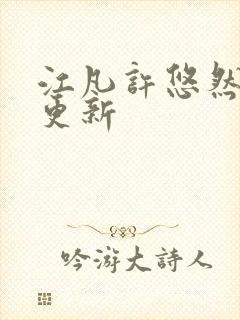 江凡許悠然
更新
吟游大詩人